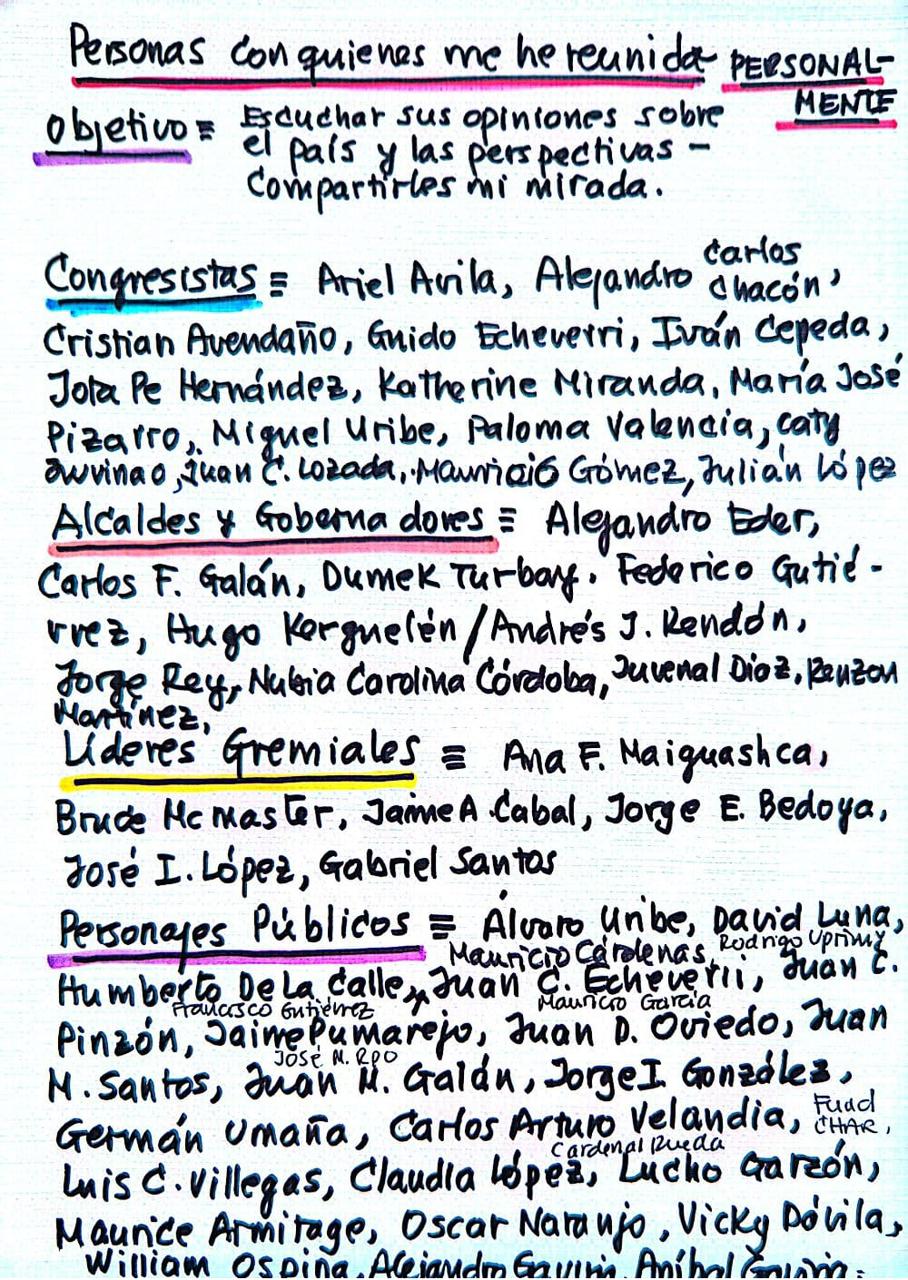 Personas con quienes me he reunido PERSONAL-
MENTE
Objetivo = Escuchar sus opiniones sobre
el país y las perspectivas -
Compartirles mi mirada.
Congresistas = Ariel Avila, Alejandro Carlos Chacón,
Cristian Avendaño, Guido Echeverri, Iván Cepeda,
Jota Pe Hernández, Katherine Miranda, María José
Pizarro, Miguel Uribe, Paloma Valencia, Caty
Juvinao, Juan C. Lozada, Mauricio Gómez, Julián López
Alcaldes y Gobernadores = Alejandro Eder,
Carlos F. Galán, Dumek Turbay, Federico Gutié-
rrez, Hugo Kerguelén / Andrés J. Rendón,
Jorge Rey, Nubia Carolina Córdoba, Juvenal Díaz, Renzon
Martínez,
Líderes Gremiales = Ana F. Maiguashca,
Bruce Mc master, Jaime A. Cabal, Jorge E. Bedoya,
José I. López, Gabriel Santos
Personajes Públicos = Álvaro Uribe, David Luna,
Mauricio Cárdenas, Rodrigo Uprimny
Humberto De La Calle, Juan C. Echeverri, Juan C.
Francisco Gutiérrez Mauricio García
Pinzón, Jaime Pumarejo, Juan D. Oviedo, Juan
José M. RPO
M. Santos, Juan M. Galán, Jorge I. González,
Germán Umaña, Carlos Arturo Velandia, Fuad CHAR,
Cardenal Rueda
Luis C. Villegas, Claudia López, Lucho Garzón,
Maurice Armitage, Oscar Naranjo, Vicky Dávila,
William Ospina, Alejandro Gaviria, Aníbal Gaviria.